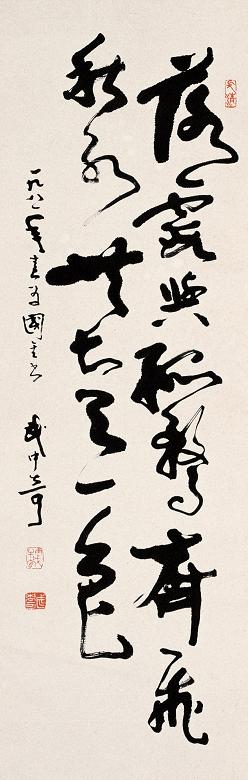 落霞與孤鶩齊飛
秋水共長天一色
一九八二年 國 武中奇